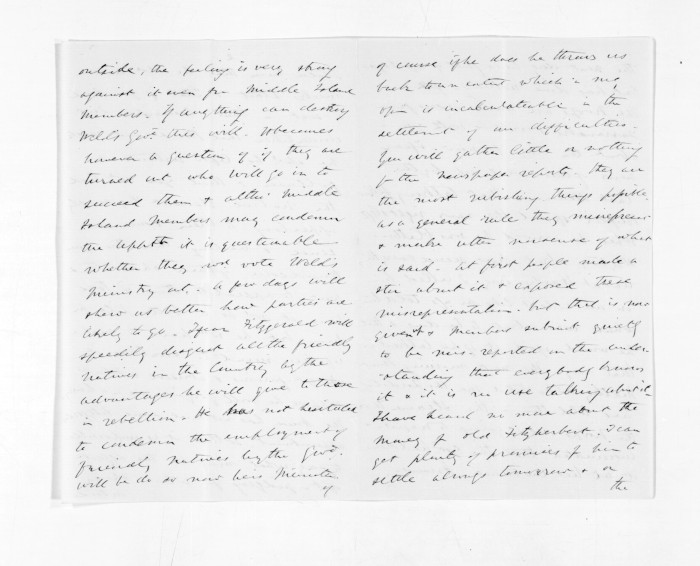 outside, the feeling is very strong
against it even fm Middle Island
Members. If anything can destroy
Weld's Govt. this will. It becomes
however a question of if they are
turned out who will go in to
succeed them & altho' Middle
Island Members may condemn
the Apptt. it is questionable
whether they wd. vote Weld's
Ministry out. A few days will
show us better how parties are
likely to go. I fear Fitzgerald will
speedily disgust all the friendly
Natives in the Country by the
advantages he will give to those
in rebellion. He has not hesitated
to condemn the employment of
friendly natives by the Govt.
will he do so now he is Minister
of
of course if he does he throws us
back to an extent which in my
opn. is incalculateable in the
settlement of our difficulties.
You will gather little or nothing
f the newspaper reports. they are
the most rubishing things possible.
as a general rule they misrepresent
& make utter nonsense of what
is said. At first people made a
stir about it & exposed these
misrepresentation. but that is now
given & Members submit quietly
to be mis-reported in the under-
-standing that everybody knows
it & it is no use talking about it.
I have heard no more about the
Money f old Fitzherbert. I can
get plenty of promises f him to
settle always tomorrow & on
the